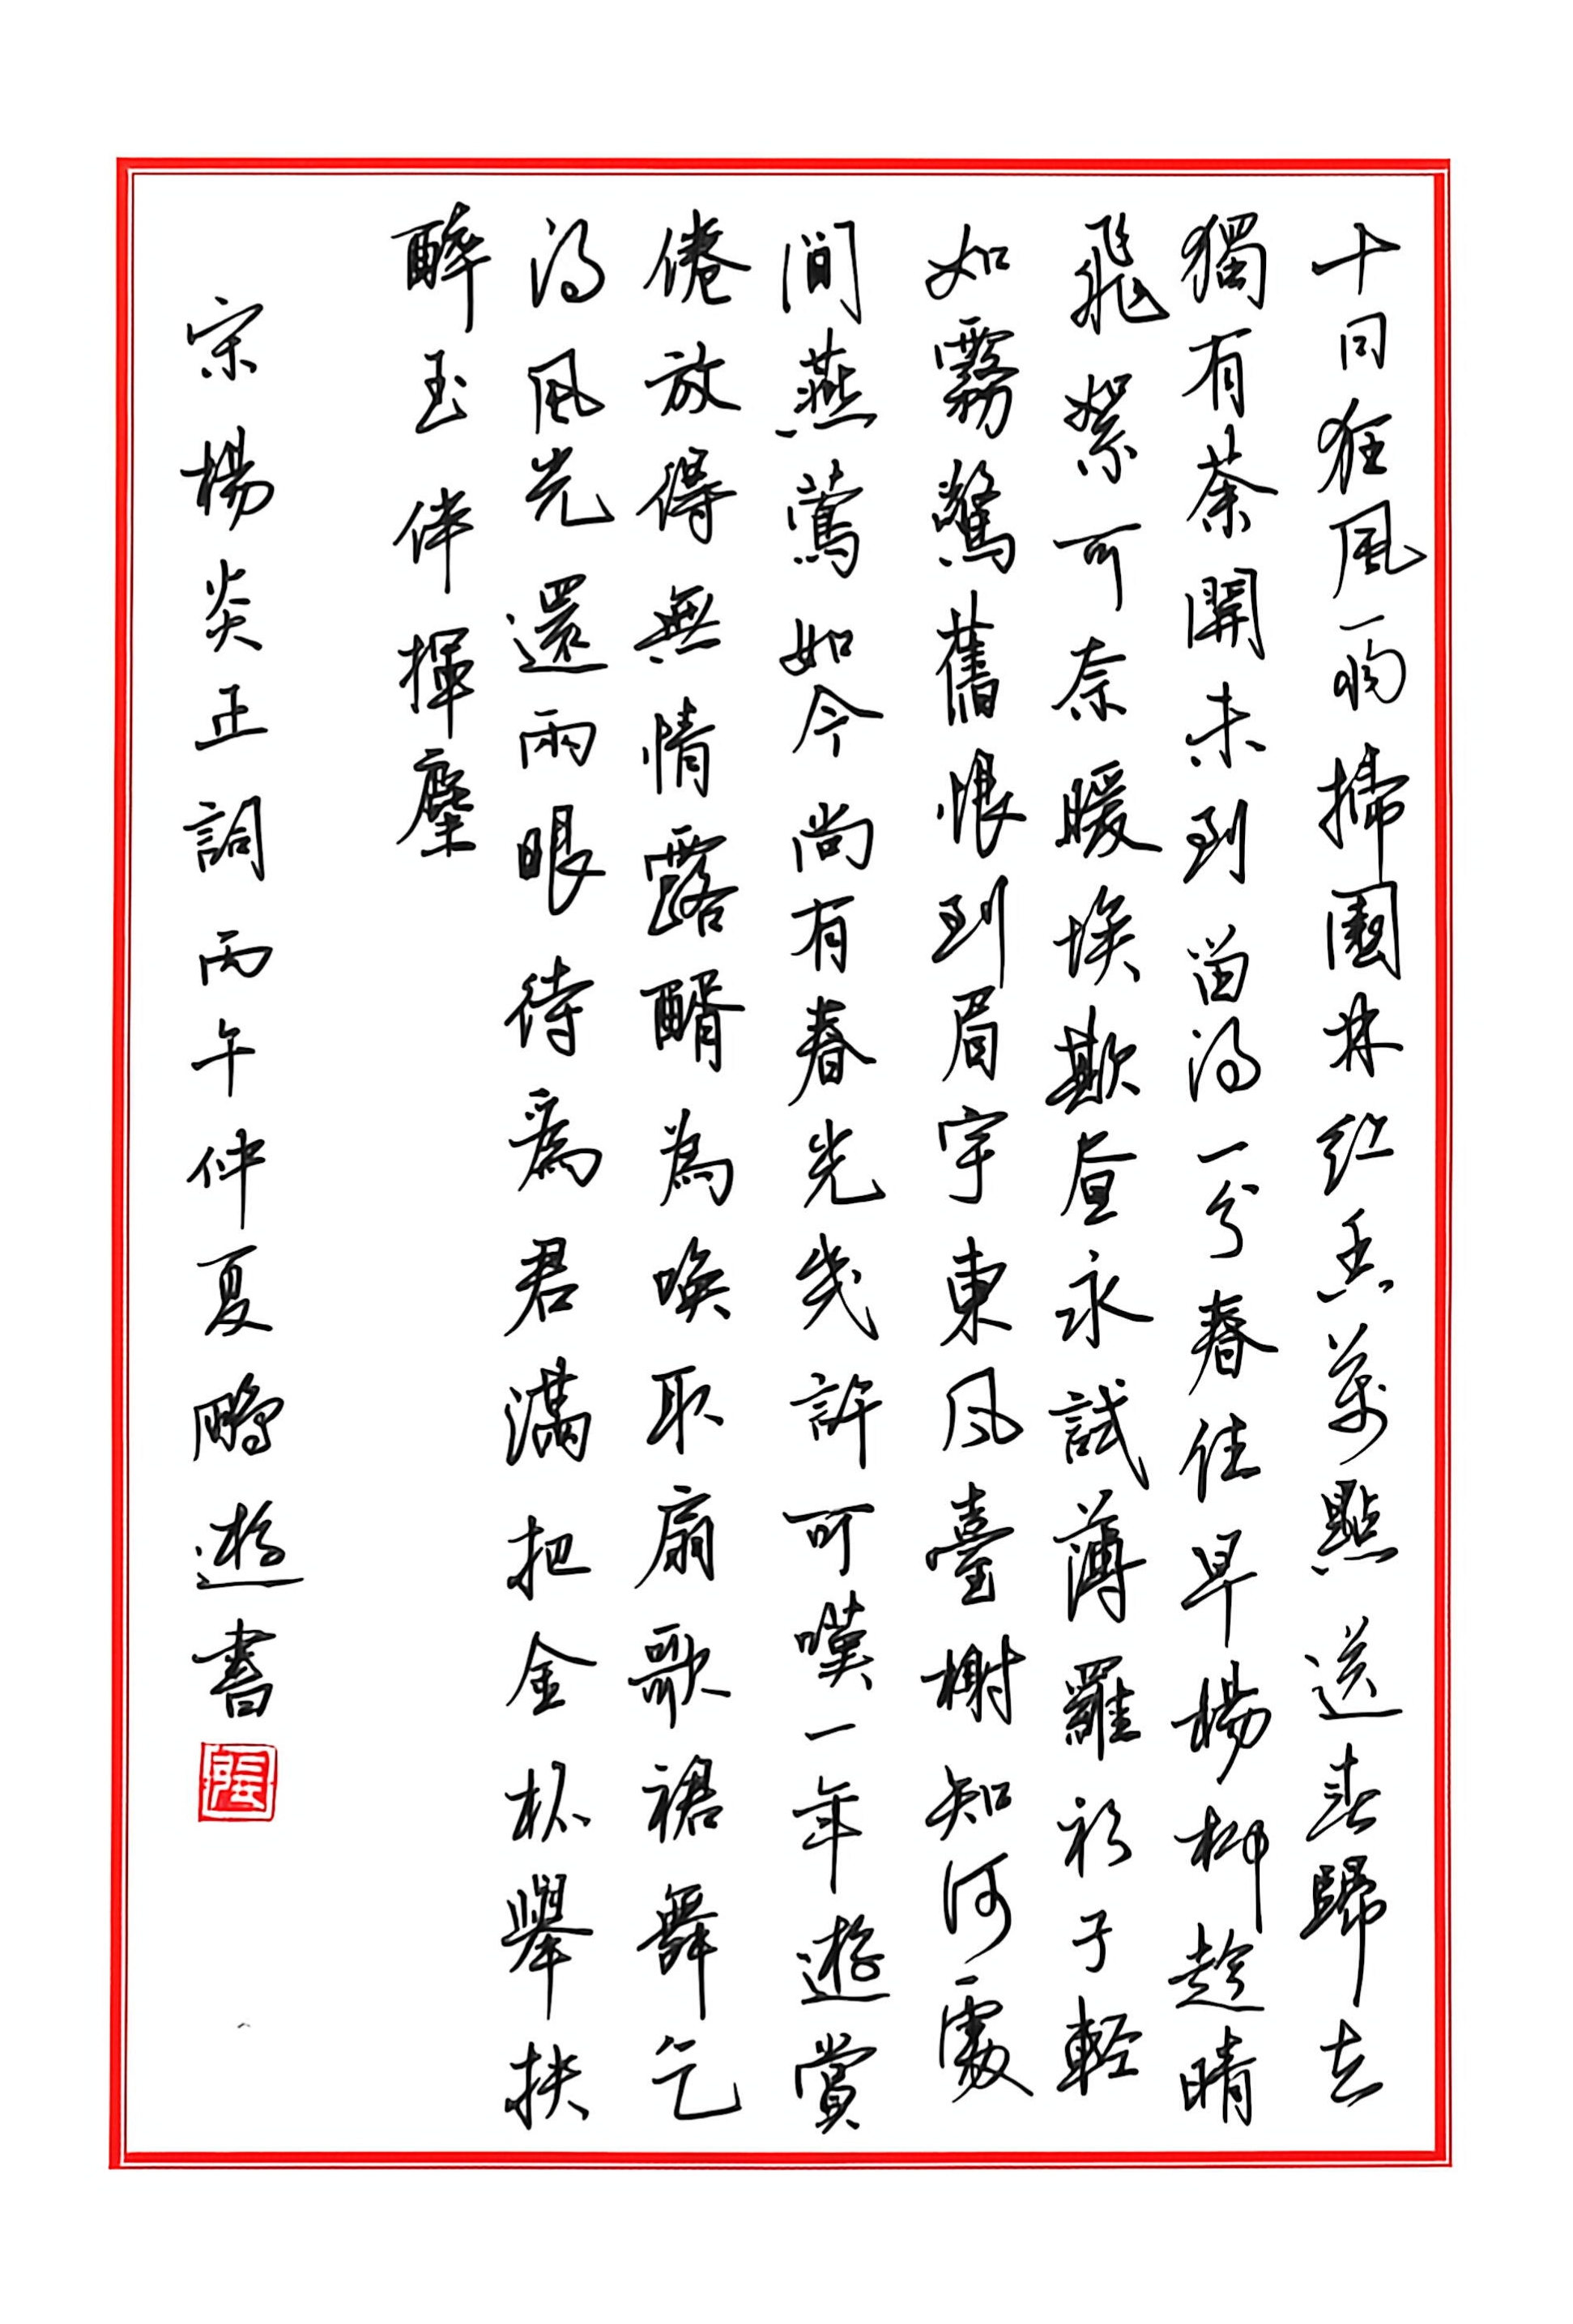 十日狂風雨掃園林紅香萬點送春歸去
獨有荼開未到留得一分春住早楊柳趁晴
飛絮可奈暖埃欺晝永試薄羅衫子輕
如霧驚舊恨到眉宇東風臺榭知何處
間燕鶯如今尚有春光幾許可嘆一年遊賞
倦放得無情露醑為喚取扇歌裙舞乞
得風光還兩眼待為君滿把金杯舉扶
醉玉伴揮麈
宋楊炎正詞丙午仲夏鵬遊書